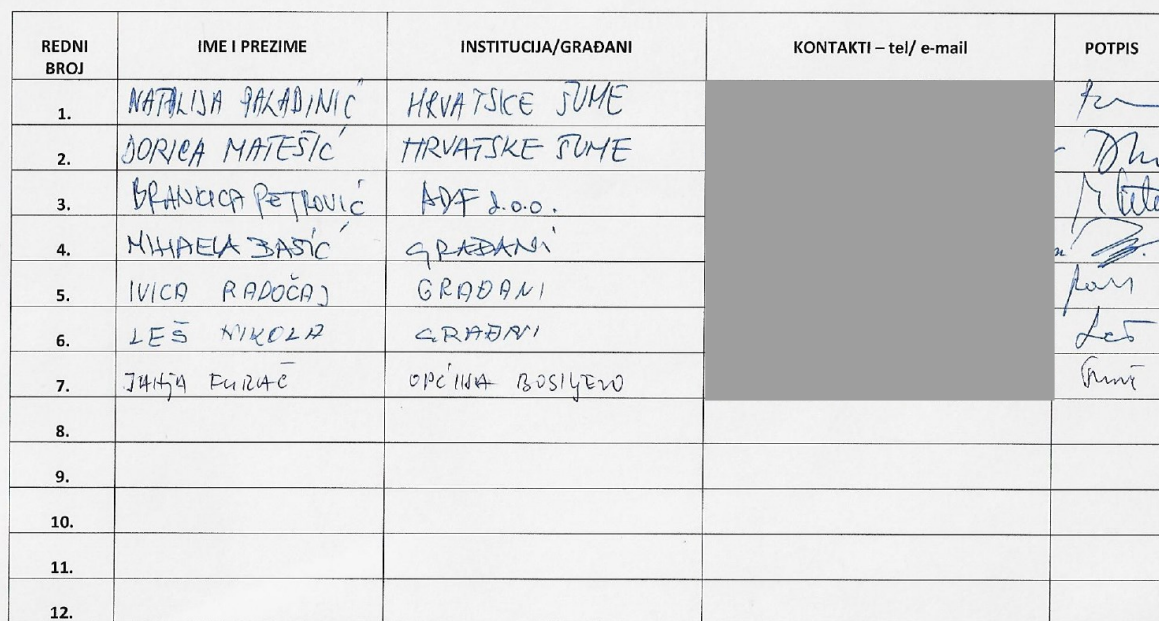 REDNI BROJ IME I PREZIME INSTITUCIJA/GRAĐANI KONTAKTI – tel/ e-mail POTPIS
1. NATALIJA PALADINIĆ HRVATSKE ŠUME
2. DORICA MATEŠIĆ HRVATSKE ŠUME
3. BRANKICA PETROVIĆ ADF d.o.o.
4. MIHAELA BASIĆ GRAĐANI
5. IVICA RADOČAJ GRAĐANI
6. LEŠ NIKOLA GRAĐANI Leš
7. JANJA FURAČ OPĆINA BOSILJEVO
8.
9.
10.
11.
12.